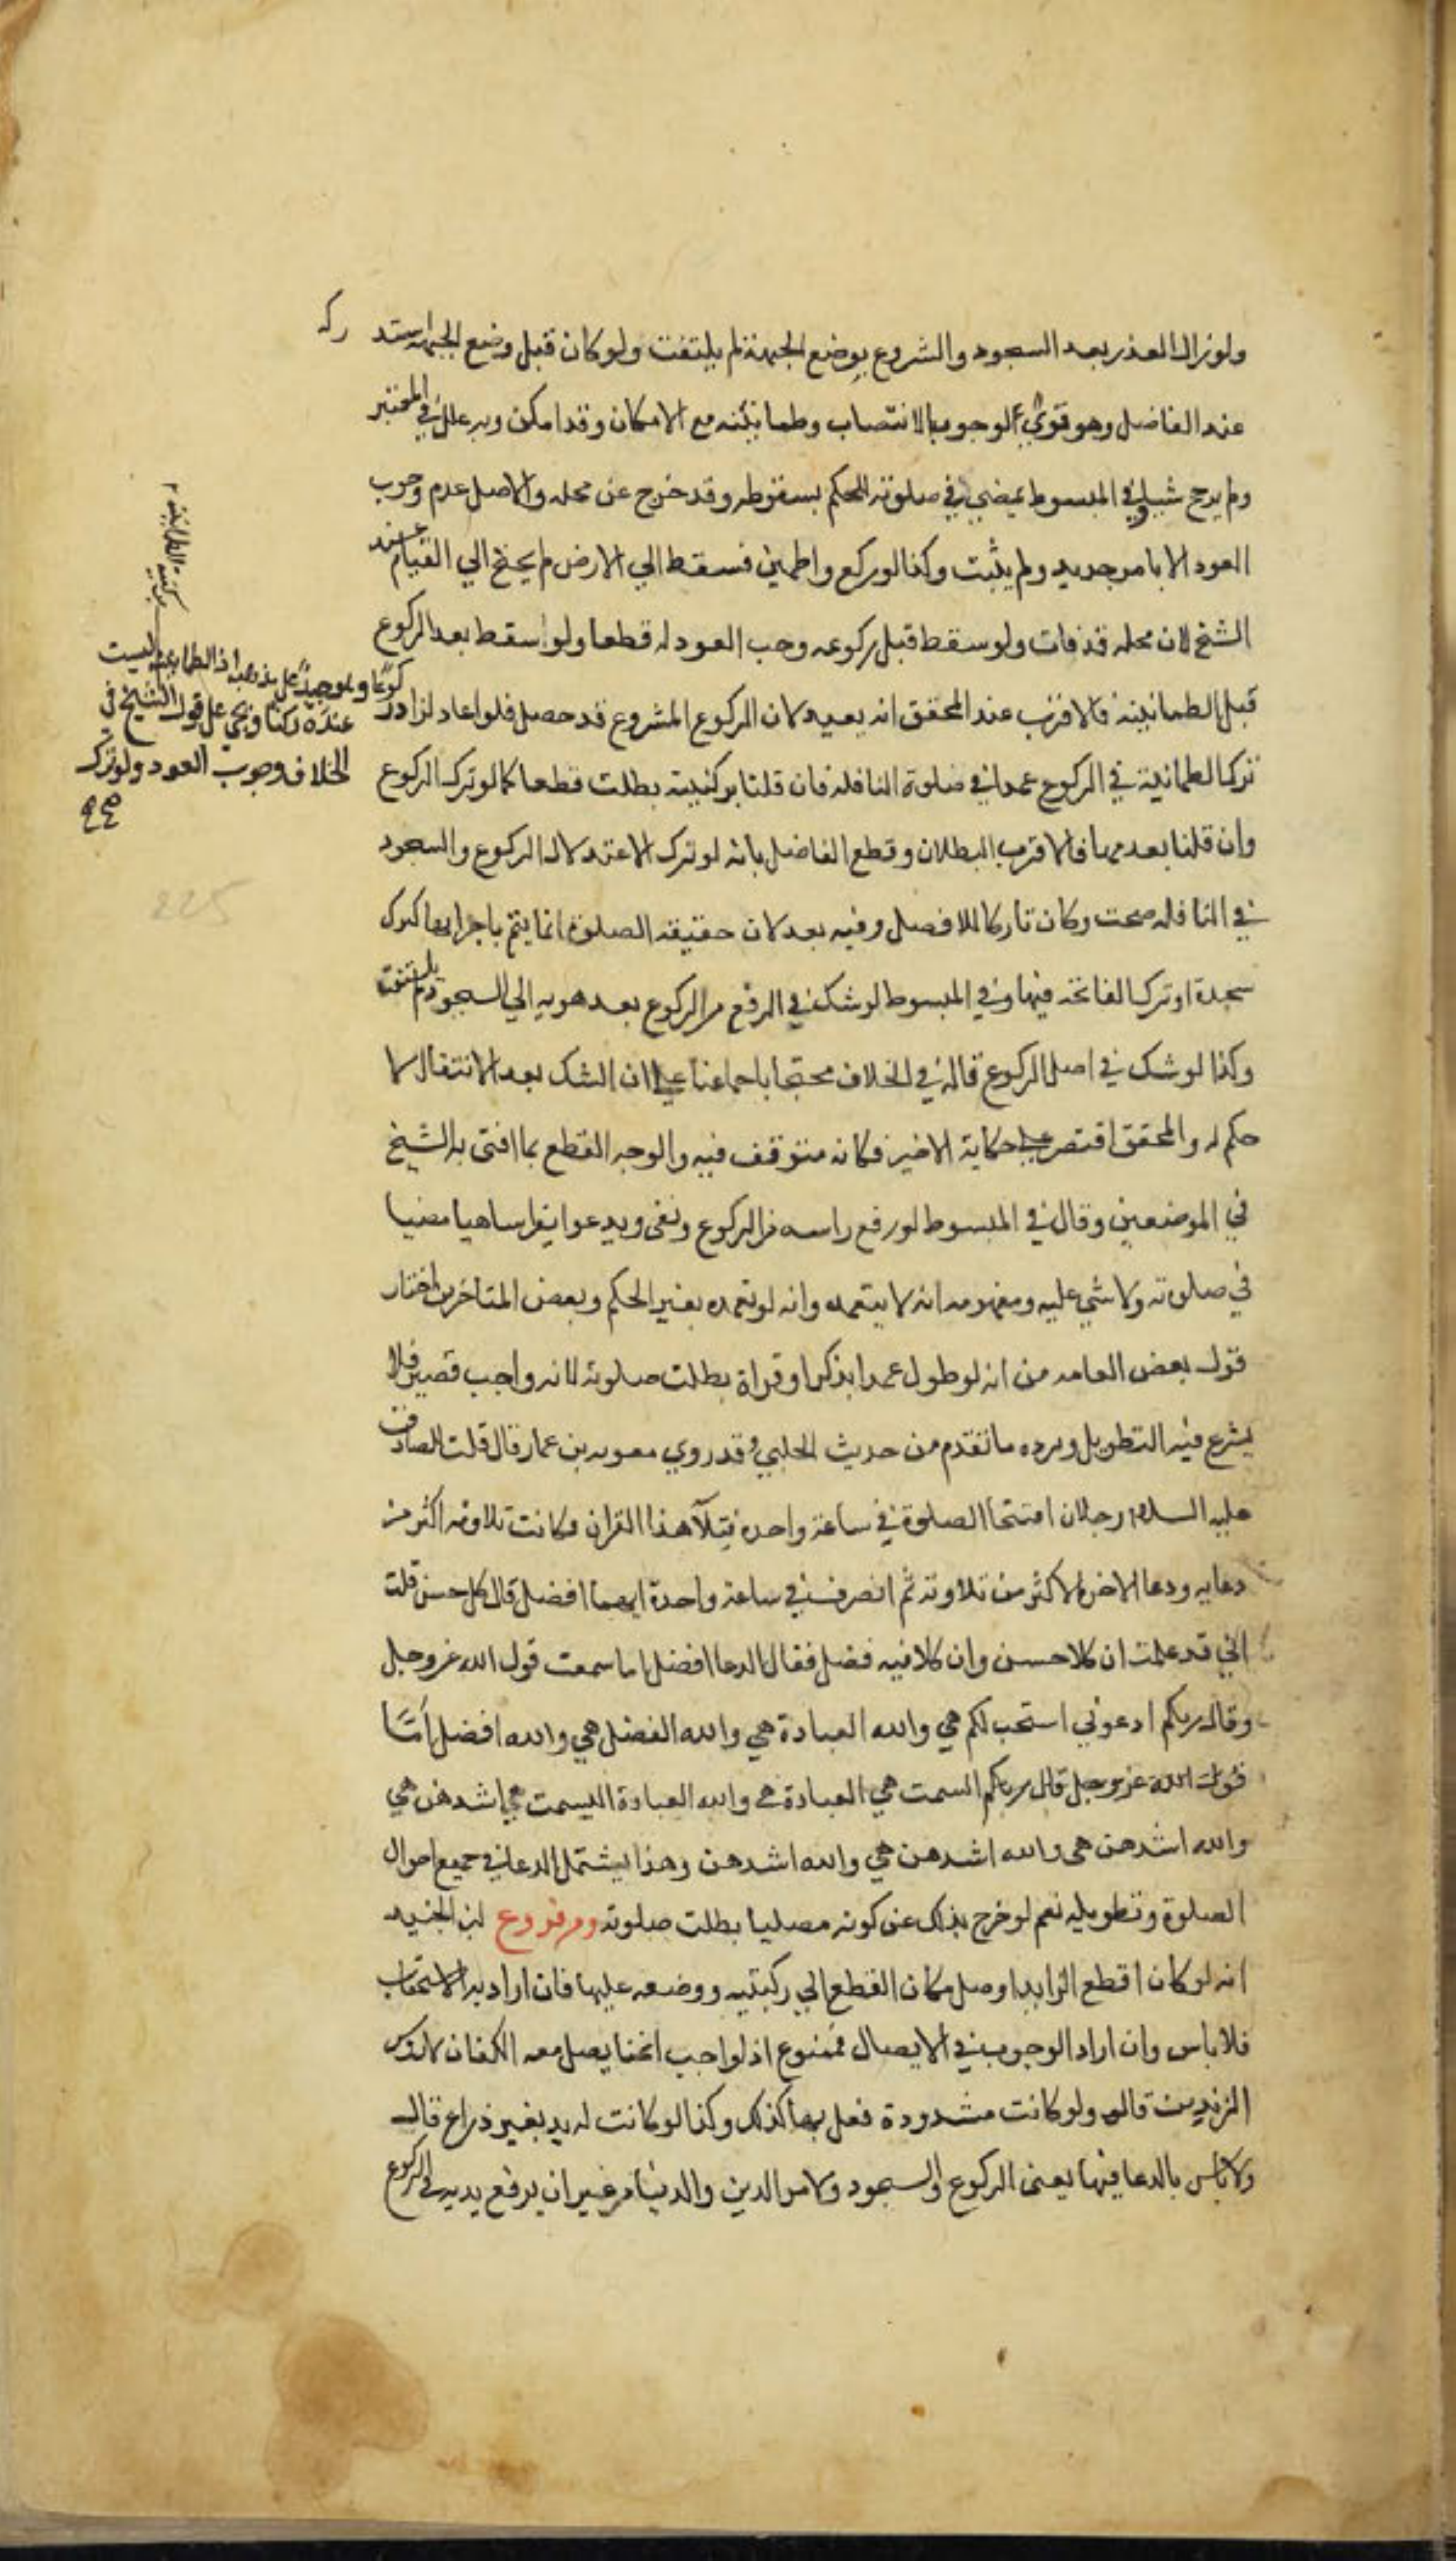 ولو زال العذر بعد السجود والشروع بوضع الجبهة لم يلتفت ولو كان قبل وضع الجبهة استد
ركه
عند الفاضل وهو قوي لوجوب الانتصاب وطمانينته مع الامكان وقد امكن وبه علل في المعتبر
ولم يرجح شيا وفي المبسوط يمضي في صلوته للحكم بسقوطه وقد خرج عن محله والاصل عدم وجوب
العود الا بامر جديد ولم يثبت وكذا لو ركع واطمين فسقط الي الارض لم يحتج الي القيام عند
الشيخ لان محله قد فات ولو سقط قبل ركوعه وجب العود له قطعا ولو اسقط بعد الركوع
قبل الطمانينه فالاقرب عند المحقق انه يعيد لان الركوع المشروع قد حصل فلو اعاد لزاد ر
كوعا وهو جيد على مذهبه اذ الطمانينه ليست
عنده ركنا ويجي على قول الشيخ في
الخلاف وجوب العود ولو ترك
صح
ترك الطمانينة في الركوع عمدا في صلوة النافله فان قلنا بركنيته بطلت قطعا كما لو ترك الركوع
وان قلنا بعدمها فالاقرب البطلان وقطع الفاضل بانه لو ترك الاعتدلال الركوع والسجود
في النافله صحت وكان تاركا للافضل وفيه بعد لان حقيقة الصلوة انما يتم باجزايها كترك
سجدة او ترك الفاتحه فيها وفي المبسوط لو شك في الرفع من الركوع بعد هويه الي السجود لم يلتفت
وكذا لو شك في اصل الركوع قاله في الخلاف محتجا باجماعنا علي ان الشك بعد الانتقال لا
حكم له والمحقق اقتصر علي حكاية الاخير فكانه متوقف فيه والوجه القطع بما افتى به الشيخ
في الموضعين وقال في المبسوط لو رفع راسه من الركوع وبقى ويدعوا يقرا ساهيا مضيا
في صلوته ولا شي عليه ومفهومه انه لا يتعمده وانه لو تعمده بغير الحكم وبعض المتاخرين اختار
قول بعض العامه من انه لو طول عمدا بذكر او قراة بطلت صلوته لانه واجب قصير فلا
يشرع فيه التطويل ويرده ما تقدم من حديث الحلبي وقد روي معويه بن عمار قال قلت للصادق
عليه السلام رجلان افتتحا الصلوة في ساعة واحده فتلا هذا القران فكانت تلاوته اكثر من
دعايه ودعا الاخر لاكثر من تلاوته ثم انصرف في ساعة واحدة ايهما افضل قال كل حسن قلت
اني قد علمت ان كلا حسن وان كلا فيه فضل فقال الدعا افضل اما سمعت قول الله عز وجل
وقال ربكم ادعوني استجب لكم هي والله العبادة هي والله الفضل هي والله افضل اما
قول الله عز وجل قال ربكم السمت هي العبادة هي والله العبادة اليست هي اشدهن هي
والله اشدهن هي والله اشدهن هي والله اشدهن وهذا يشتمل الدعا في جميع احوال
الصلوة وتطويله نعم لو خرج بذلك عن كونه مصليا بطلت صلوته ومن فروع ابن الجنيد
انه لو كان اقطع الزايد اوصل مكان القطع الي ركبتيه ووضعه عليها فان اراد به الاستحباب
فلا باس وان اراد الوجوب في الايصال فممنوع اذ الواجب انحنا يصل معه الكفان لا روس
الزندين قال ولو كانت مشدودة فعل بها كذلك وكذا لو كانت له يد بغير ذراع قال
ولا باس بالدعا فيها يعني الركوع والسجود ولامر الدين والدنيا من غير ان يرفع يديه في الركوع
225